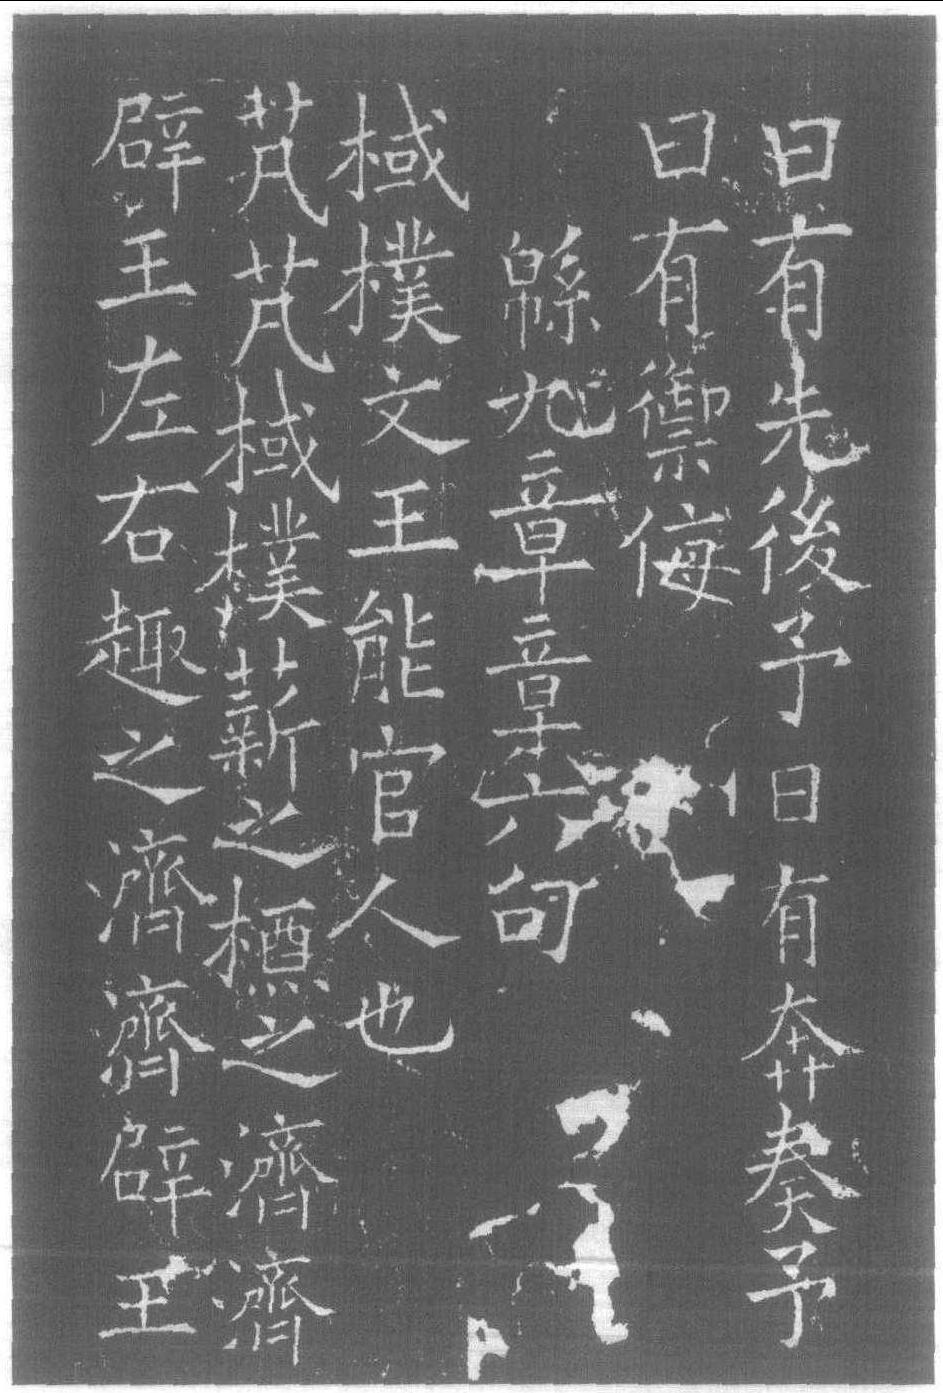 曰有先後予曰有奔奏予
曰有禦侮
緜九章章六句
棫樸文王能官人也
芃芃棫樸薪之槱之濟濟
辟王左右趣之濟濟辟王